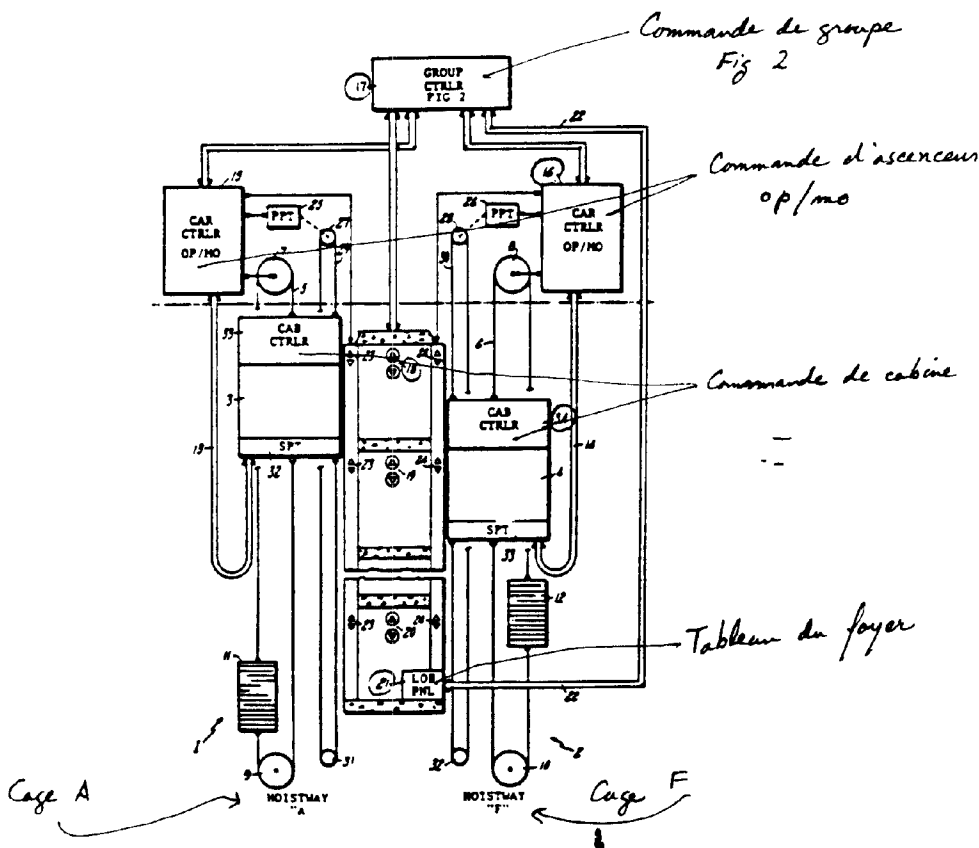 Commande de groupe
Fig 2
GROUP
CTRLR
FIG 2
17
22
Commande d'ascenceur
op/mo
15
CAR
CTRLR
OP/MO
25
PPT
27
29
7
5
26
PPT
28
30
8
16
CAR
CTRLR
OP/MO
33
CAB
CTRLR
3
SPT
32
13
23
18
24
6
Commande de cabine
CAB
CTRLR
34
4
SPT
33
23
19
24
12
23
20
24
Tableau du foyer
21
LOB
PNL
22
11
1
9
31
32
10
2
Cage A
HOISTWAY
"A
HOISTWAY
"F"
Cage F